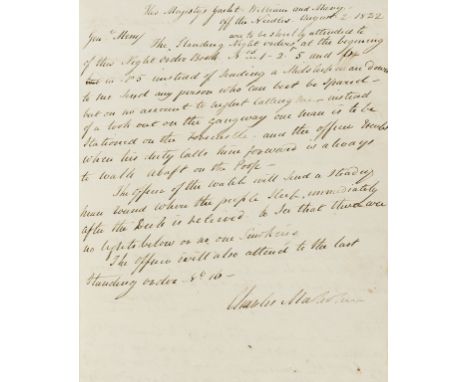 His Majestys Yacht William and Mary
off the Needles August 2 1822
Gen.l Mem.
are to be strictly attended to
The Standing Night orders at the begining
of this Night order Book N.o 1 - 2 - 5 and
in N.o 5 instead of sending a Midshipman down
to me send any person who can best be spared -
but on no account to neglect calling me - instead
of a look out on the gangway one man is to be
stationed on the Forecastle - and the officer
when his duty calls him forward is always
to walk abaft on the Poop -
The officer of the watch will send a steady
man round where the people sleep immediately
after the Deck is relieved to see that there are
no lights below or no one Smoking
The officer will also attend to the last
Standing order N.o 16 -
Charles